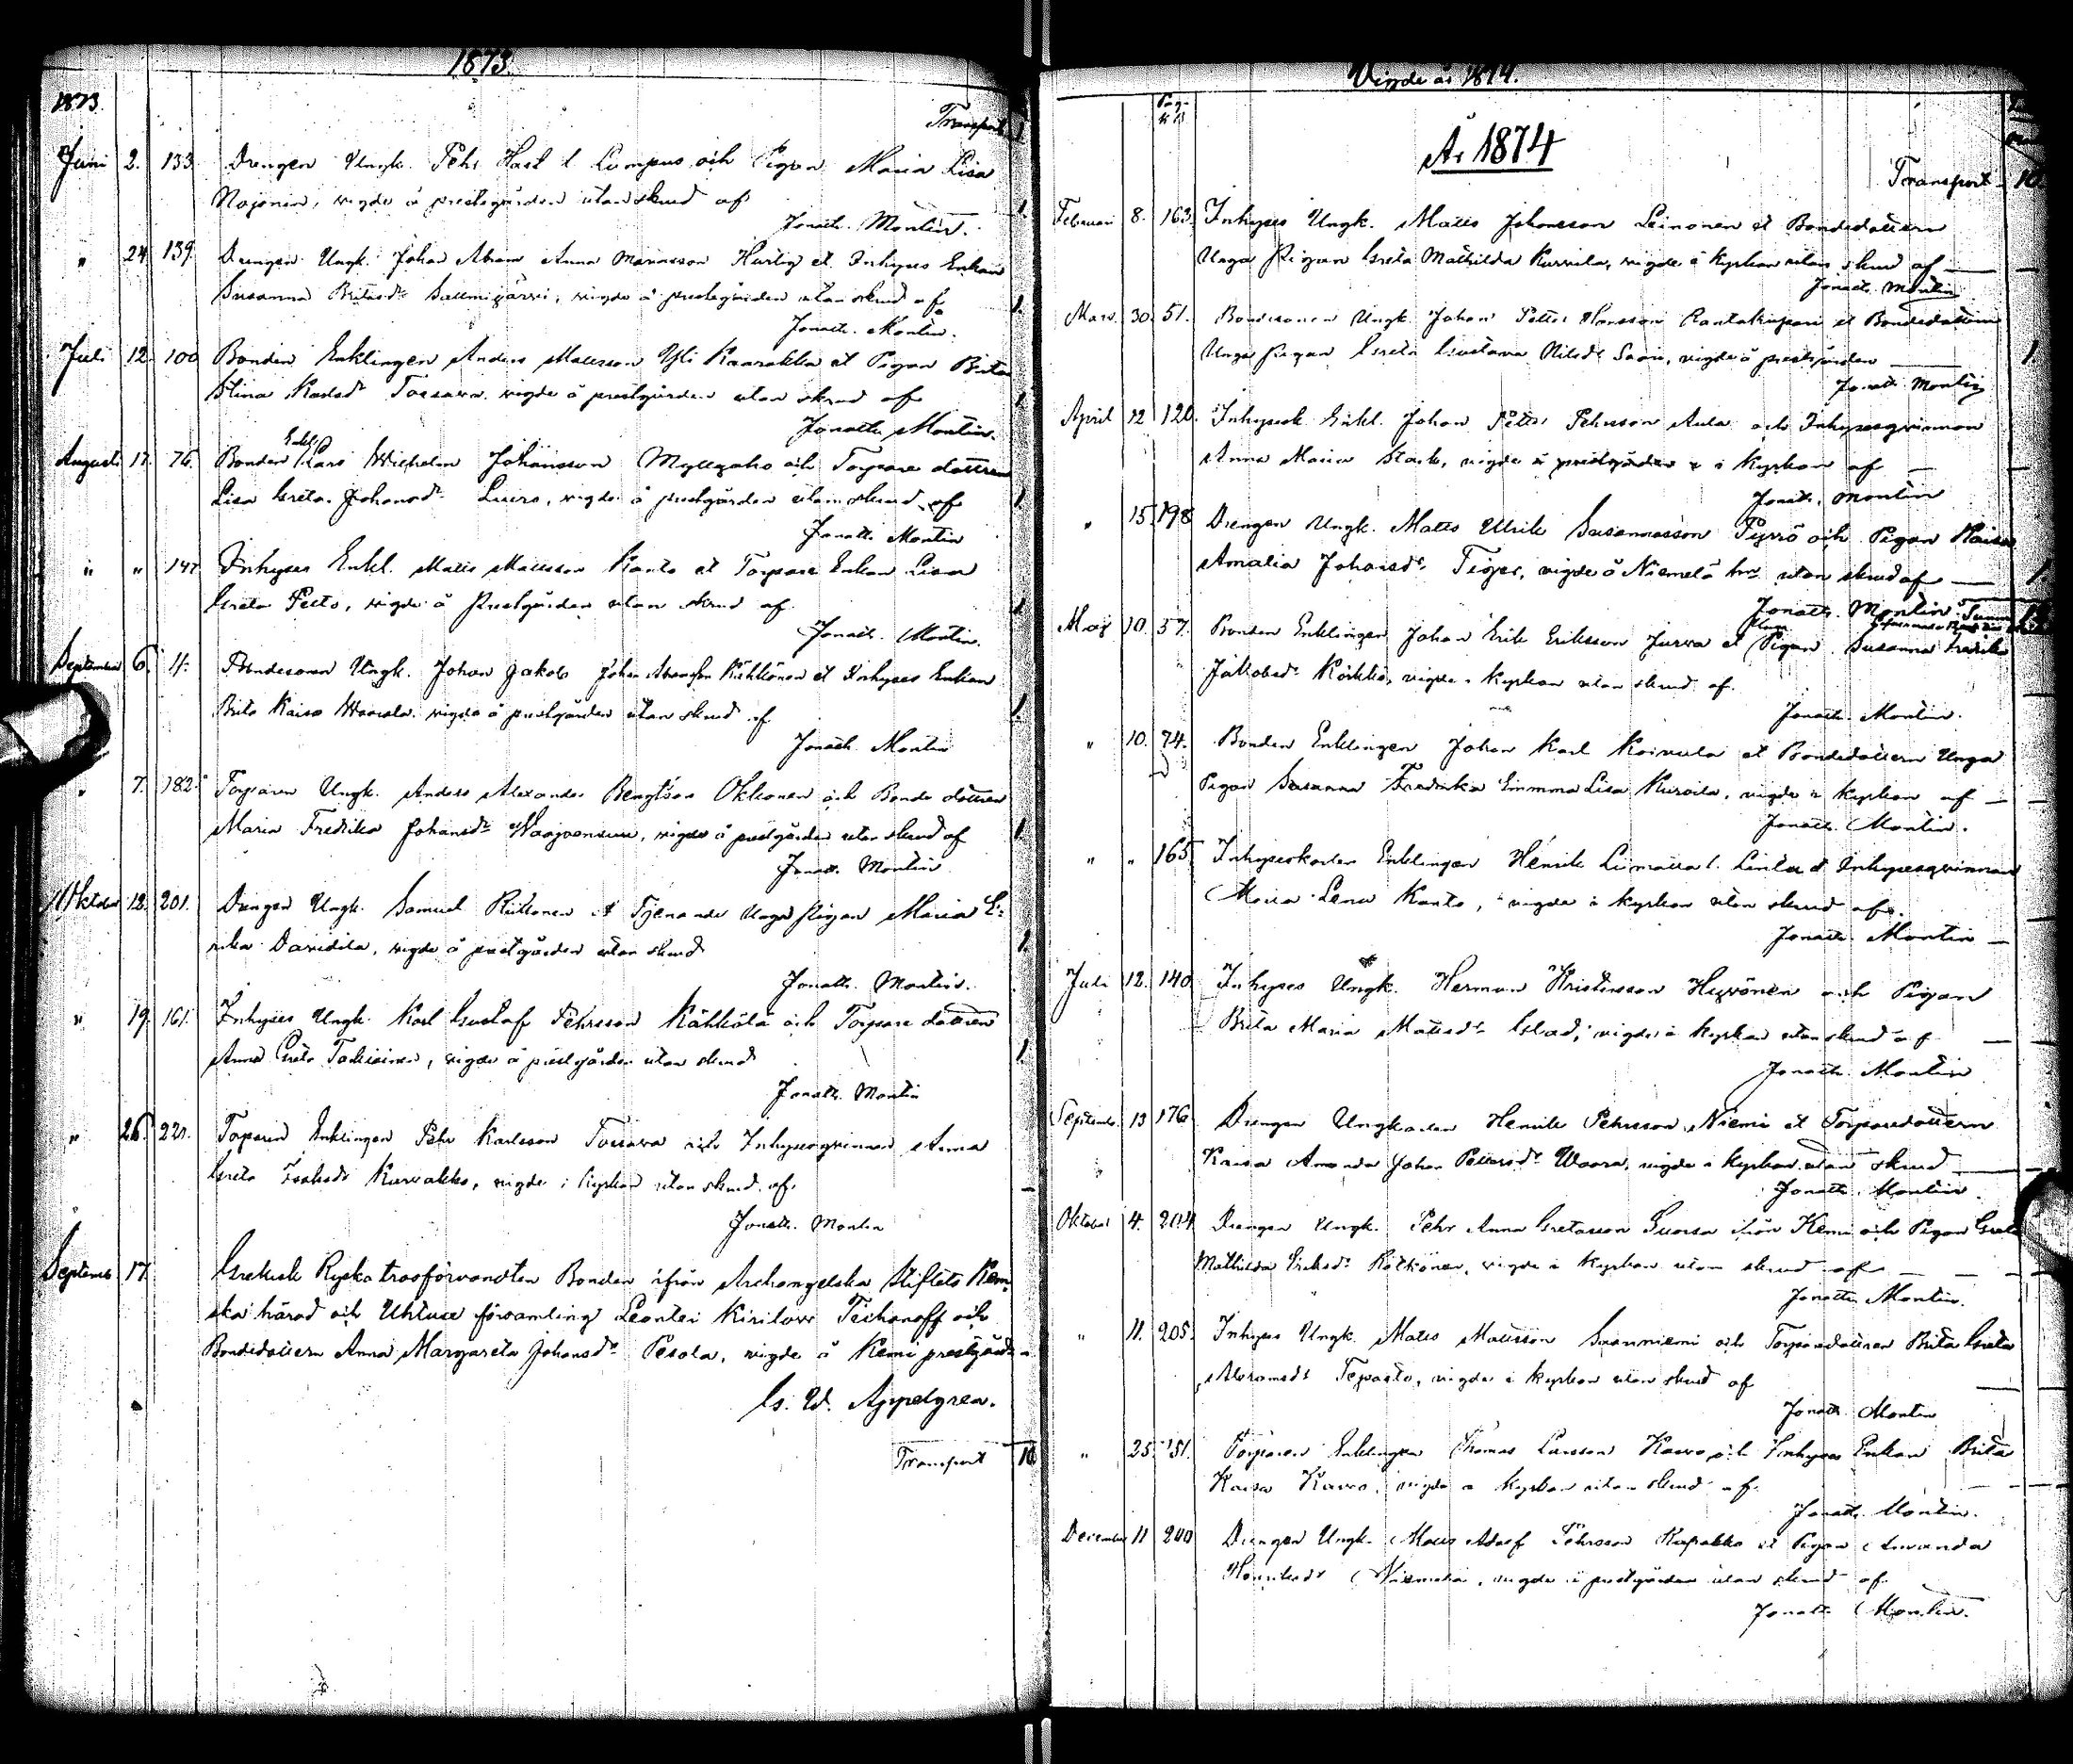 1873.
1873.
Transport
Juni 2. 133. Drengen Ungk. Pehr Hast l. Lumpus och Pigan Maria Lisa
Najonen, vigde å prestgården utan skrud af
Jonath. Montin.
" 24 139. Drengen Ungk. Johan Abram Anna Mariasson Hurtig et Inhyses Enkan
Susanna Britasdr Salmijärvi, vigde å prestgården utan skrud af
Jonath. Montin.
Juli 12. 100 Bonden Enklingen Anders Mattsson Yli Kaarakka et Pigan Brita
Stina Karlsdr Tossava. vigde å prestgården utan skrud af
Jonath. Montin.
Augusti 17. 76. Bonden Enkl. Lars Wilhelm Johansson Myllyaho och Torpare dottren
Lisa Greta Johansdr Luiro, vigde å prestgården utan skrud af
Jonath. Montin
" " 147. Inhyses Enkl. Matts Mattsson Kanto et Torpare Enkan Lisa
Greta Petto, vigde å Prestgården utan skrud af
Jonath. Montin.
September 6. 11. Bondesonen Ungk. Johan Jakob Johan Abramsson Kähkönen et Inhyses Enkan
Brita Kaisa Waarala. vigde å prestgården utan skrud af
Jonath. Montin
" 7. 182. Torparen Ungk. Anders Alexander Bengtsson Okkonen och Bonde dottren
Maria Fredrika Johansdr Waajoensuu, vigde å prestgården utan skrud af
Jonath. Montin
Oktober 12. 201. Drengen Ungk. Samuel Riikonen et Tjenande Unga Pigan Maria E-
rika Davidila, vigde å prestgården utan skrud
Jonath. Montin.
" 19. 161. Inhyses Ungk. Karl Gustaf Pehrsson Kähkölä och Torpare dottren
Anna Greta Tarkiainen, vigde å prestgården utan skrud
Jonath. Montin
" 26. 221. Torparen Enklingen Pehr Karlsson Tossava och Inhysesqvinnan Anna
Greta Isaksdr Kurvakko, vigde i kyrkan utan skrud af
Jonath. Montin
Septemb 17. Grekisk Ryska trosförvandten Bonden ifrån Archangelska Stiftets Kem-
ska härad och Uhtuse församling Leontei Kirilow Tichanoff och
Bondedottern Anna Margareta Johansdr Pesola, vigde å Kemi prestgård
G. W. Appelgren.
Transport 10
Vigde år 1874.
Pag.
År 1874
Transport 10.
Februari 8. 163. Inhyses Ungk. Matts Johansson Leinonen et Bondedottern
Unga Pigan Greta Mathilda Kurvila, vigde i kyrkan utan skrud af
Jonath. Montin
Mars. 30. 51. Bondesonen Ungk. Johan Petter Hansson Rantakupari et Bondedottern
Unga Pigan Greta Gustava Nilsdr Saari, vigde å prestgården
Jonath. Montin
April 12 120. Inhyseck Enkl. Johan Petter Pehrsson Aula och Inhysesqvinnan
Anna Maria Stark, vigde å prestgården i kyrkan af
Jonath. Montin
" 15. 198 Drengen Ungk. Matts Ulrik Susannasson Pyrrö och Pigan Kaisa
Amalia Johansdr Tiger, vigde å Niemelä hm utan skrud af
Jonath. Montin.
Maj 10. 57. Bonden Enklingen Johan Erik Eriksson Jurva et Pigan Susanna Fredrika
Jakobsdr Körkkö, vigde i kyrkan utan skrud af
Jonath. Montin.
" 10. 74. Bonden Enklingen Johan Karl Koivula et Bondedottern Unga
Pigan Susanna Fredrika Emma Lisa Kurvila, vigde i kyrkan af
Jonath. Montin.
" " 165 Inhyseskarlen Enklingen Henrik Limatta l. Linta et Inhysesqvinnan
Maria Lena Kanto, vigde i kyrkan utan skrud af
Jonath. Montin
Juli 12. 140 Inhyses Ungk. Herman Kristersson Hyvönen och Pigan
Brita Maria Mattsdr Glad, vigde i kyrkan utan skrud af
Jonath. Montin
Septemb. 13 176 Drengen Ungkarlen Henrik Pehrsson Niemi et Torparedottern
Kaisa Amanda Johan Pettersdr Waara, vigde i kyrkan utan skrud
Jonath. Montin.
Oktober 4. 204 Drengen Ungk. Pehr Anna Gretasson Suorsa från Kemi och Pigan Greta
Mathilda Eriksdr Rötkönen, vigde i kyrkan utan skrud af
Jonath. Montin.
" 11. 205. Inhyses Ungk. Matts Mattsson Suanniemi och Torparedottren Brita Greta
Abramsdr Tepasto, vigde i kyrkan utan skrud af
Jonath. Montin
" 25. 151. Torparen Enklingen Thomas Larsson Kavo och Inhyses Enkan Brita
Kaisa Kavo, vigde i kyrkan utan skrud af
Jonath. Montin.
December 11 200 Drengen Ungk. Matts Adolf Pehrsson Kuprakko et Pigan Amanda
Henriksdr Niemelä, vigde å prestgården utan skrud af
Jonath. Montin.